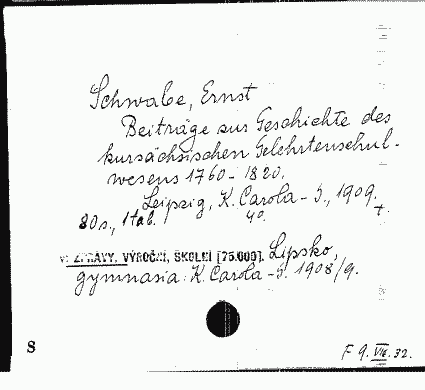 Schwabe, Ernst
Beiträge zur Geschichte des
kursächsischen Gelehrtenschul-
wesens 1760-1820.
Leipzig, K. Carola-G., 1909.
80 s., 1 tab. 4°. +.
v: ZPRÁVY, VÝROČNÍ, ŠKOLNÍ [75.000]. Lipsko,
gymnasia: K. Carola-G. 1908/9.
S
F 9. VII. 32.